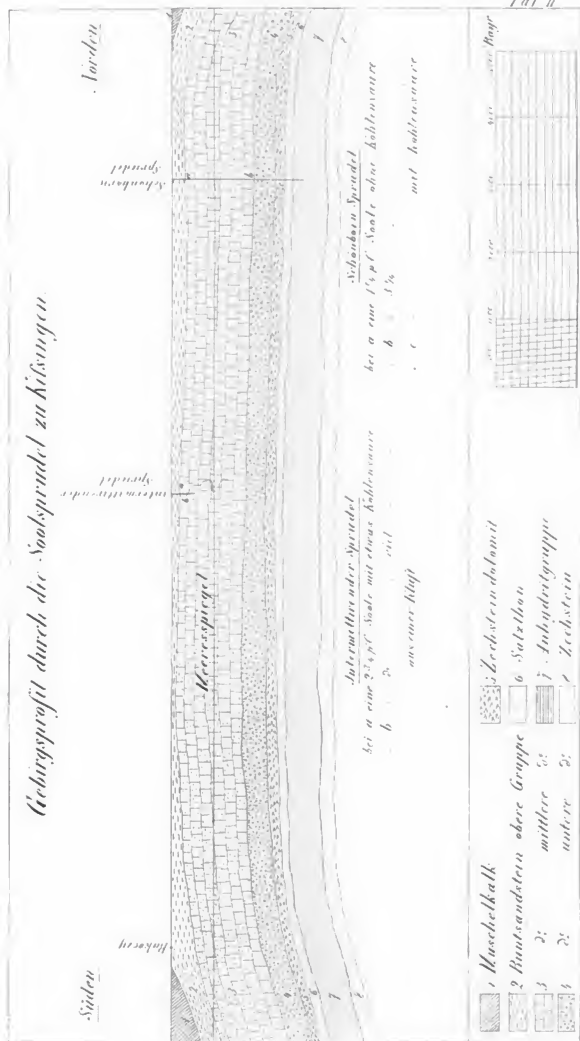 Gebirgsprofil durch die Soolsprudel zu Kissingen.
Süden
Norden
intermittirender
Sprudel
Schönborn
Sprudel
Meeresspiegel
Intermittirender Sprudel
bei a eine 2 3/4 pC Soole mit etwas Kohlensäure
- b - do - viel -
aus einer Kluft
Schönborn Sprudel
bei a eine 1 1/2 pC Soole ohne Kohlensäure
- b -
- c - mit Kohlensäure
1 Muschelkalk
2 Buntsandstein obere Gruppe
3 do mittlere do
4 do untere do
5 Zechsteindolomit
6 Salzthon
7 Anhydritgruppe
Zechstein